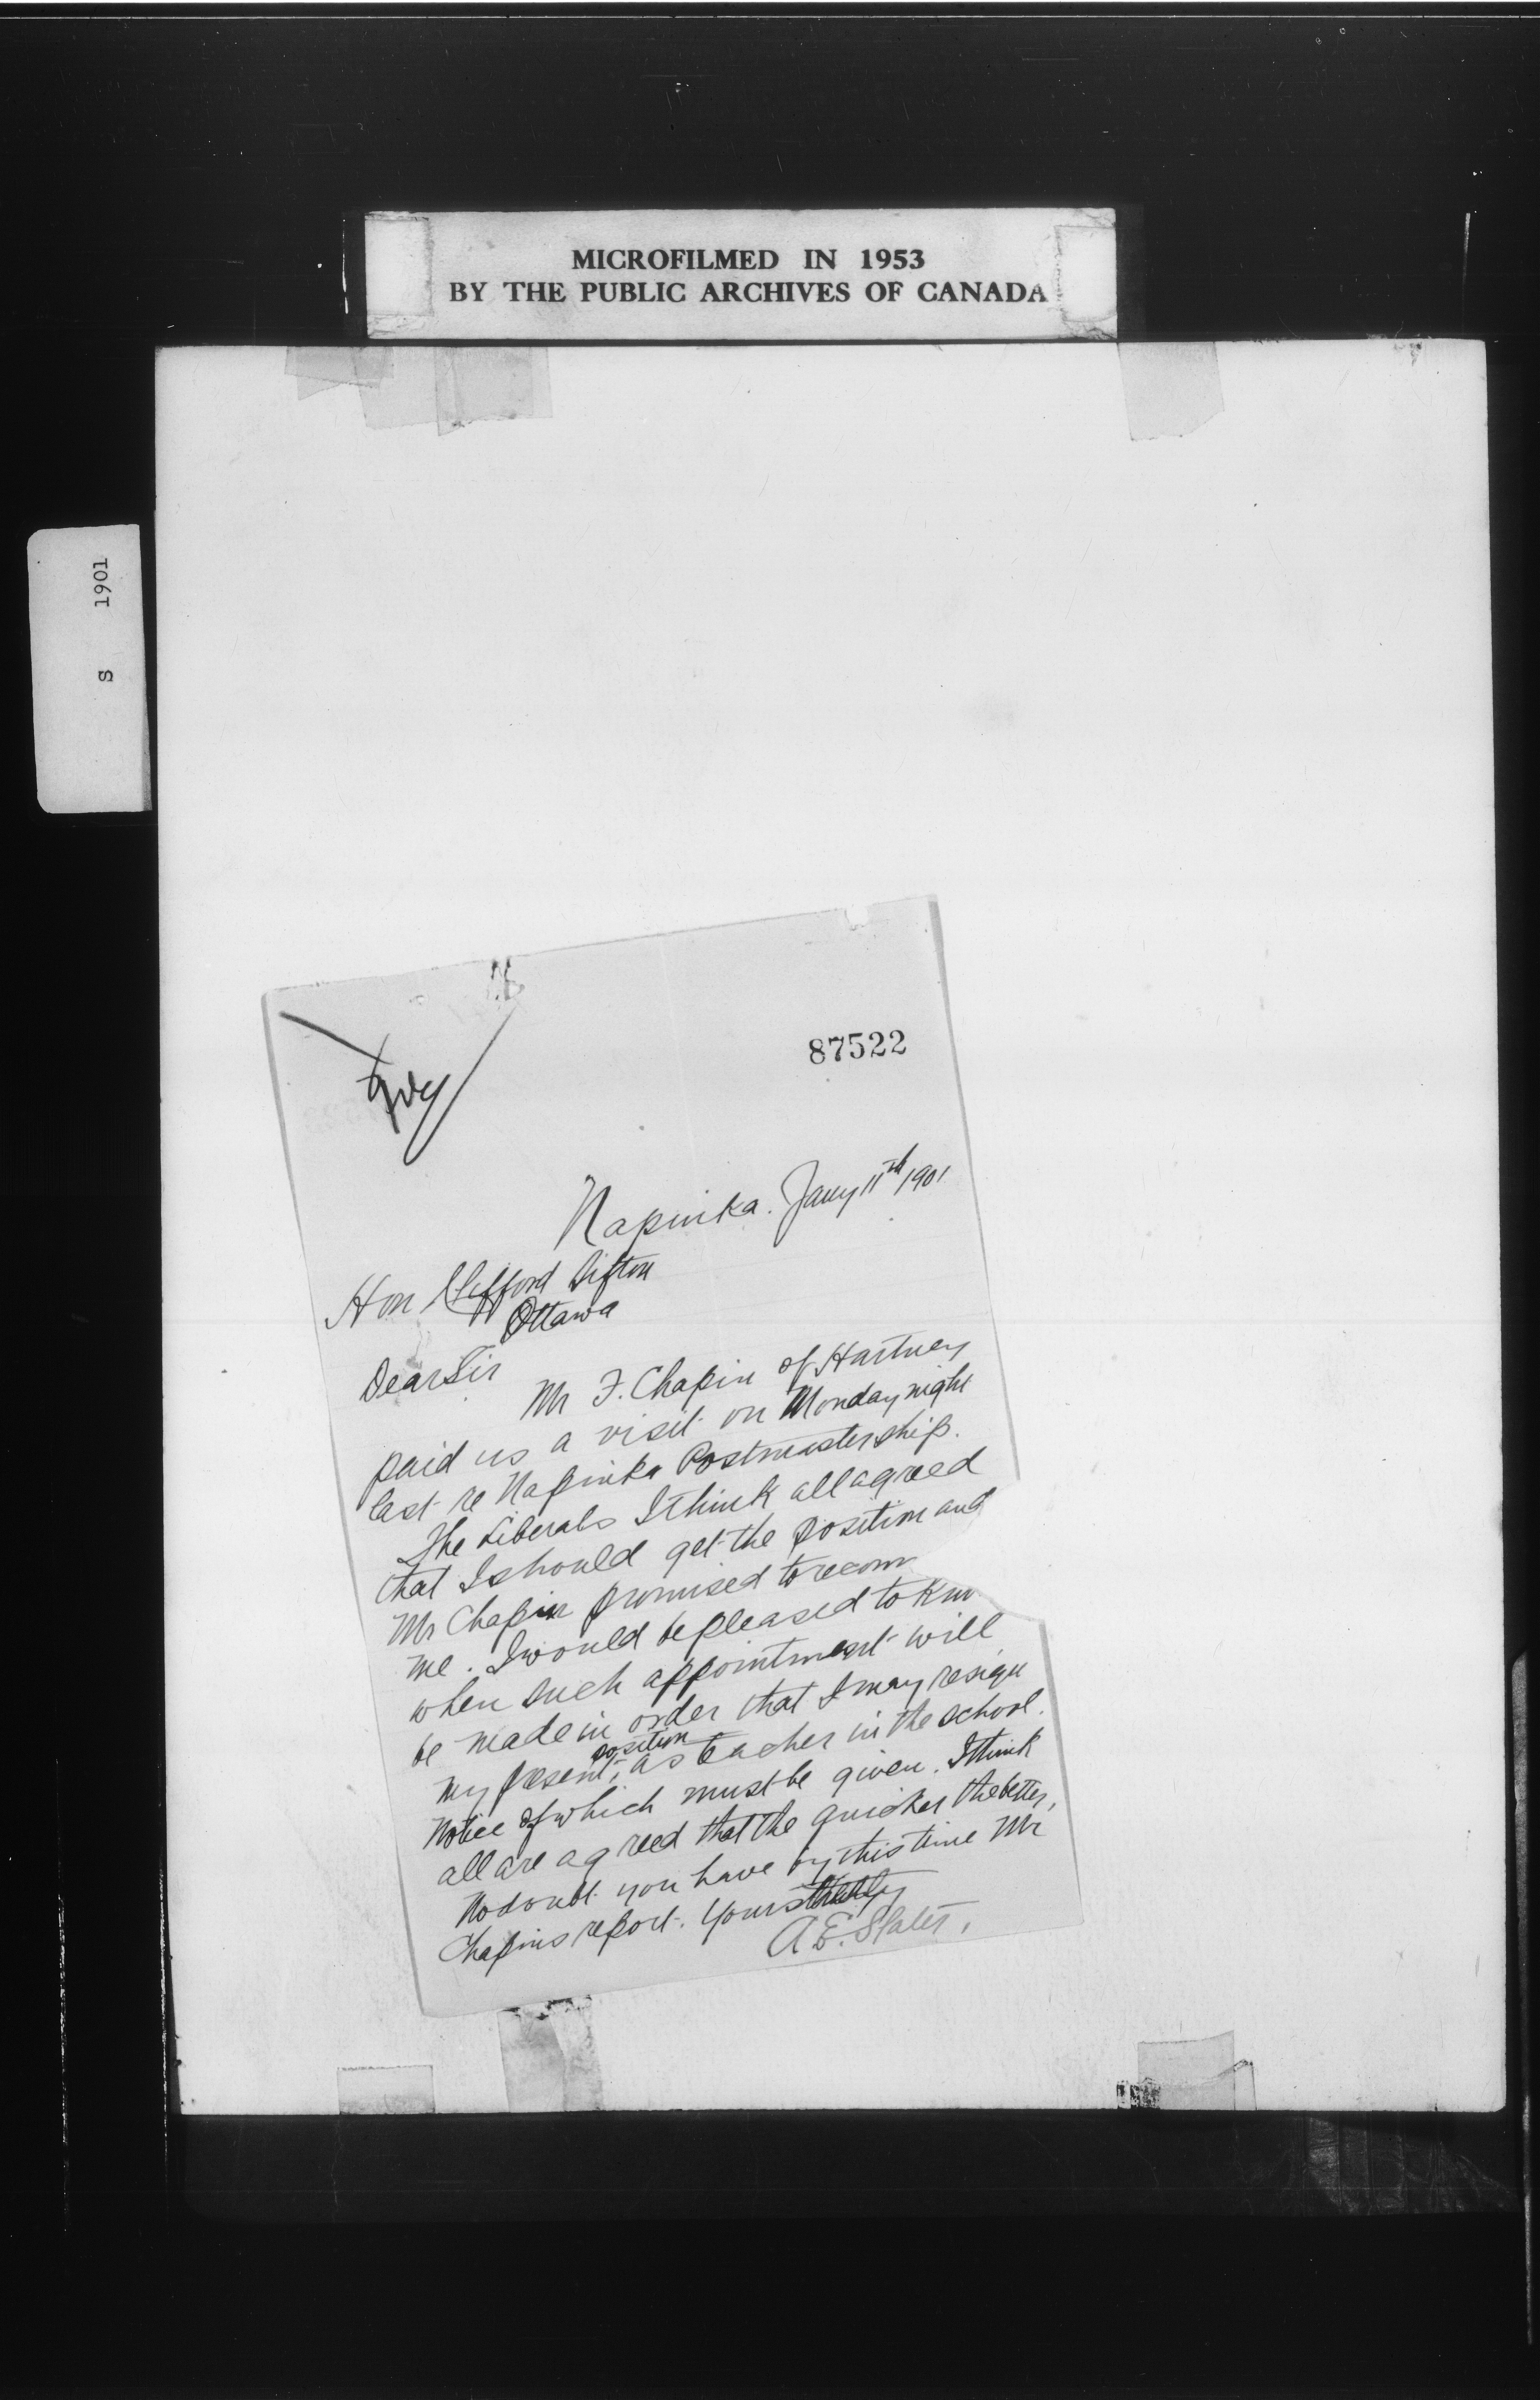 MICROFILMED IN 1953
BY THE PUBLIC ARCHIVES OF CANADA
S 1901
87522
Napinka. Jany 11th 1901
Hon Clifford Sifton
Ottawa
Dear Sir
Mr F. Chapin of Hartney
paid us a visit on Monday night
last re Napinka Postmastership.
The Liberals I think all agreed
that I should get the position and
Mr Chapin promised to recom
me. I would be pleased to kno
when such appointment will
be made in order that I may resign
my present position as teacher in the school.
Notice of which must be given. I think
all are agreed that the quicker the better,
No doubt you have by this time Mr
Chapins report. Yours truly
A. E. Slater.